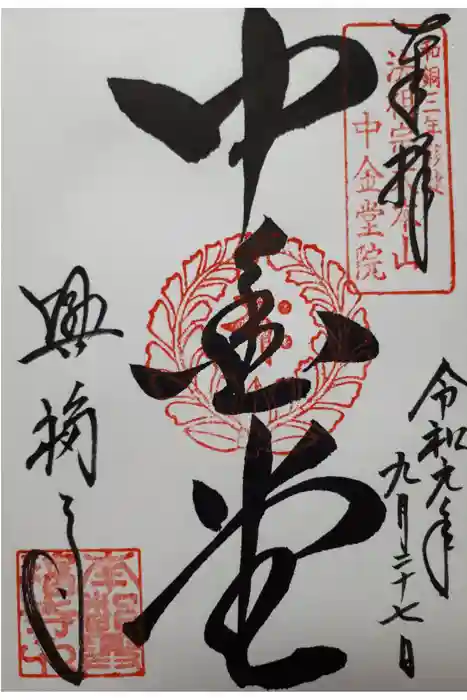 奉拝
和銅三年創建
法相宗大本山
中金堂院
中金堂
令和元年
九月二十七日
興福寺